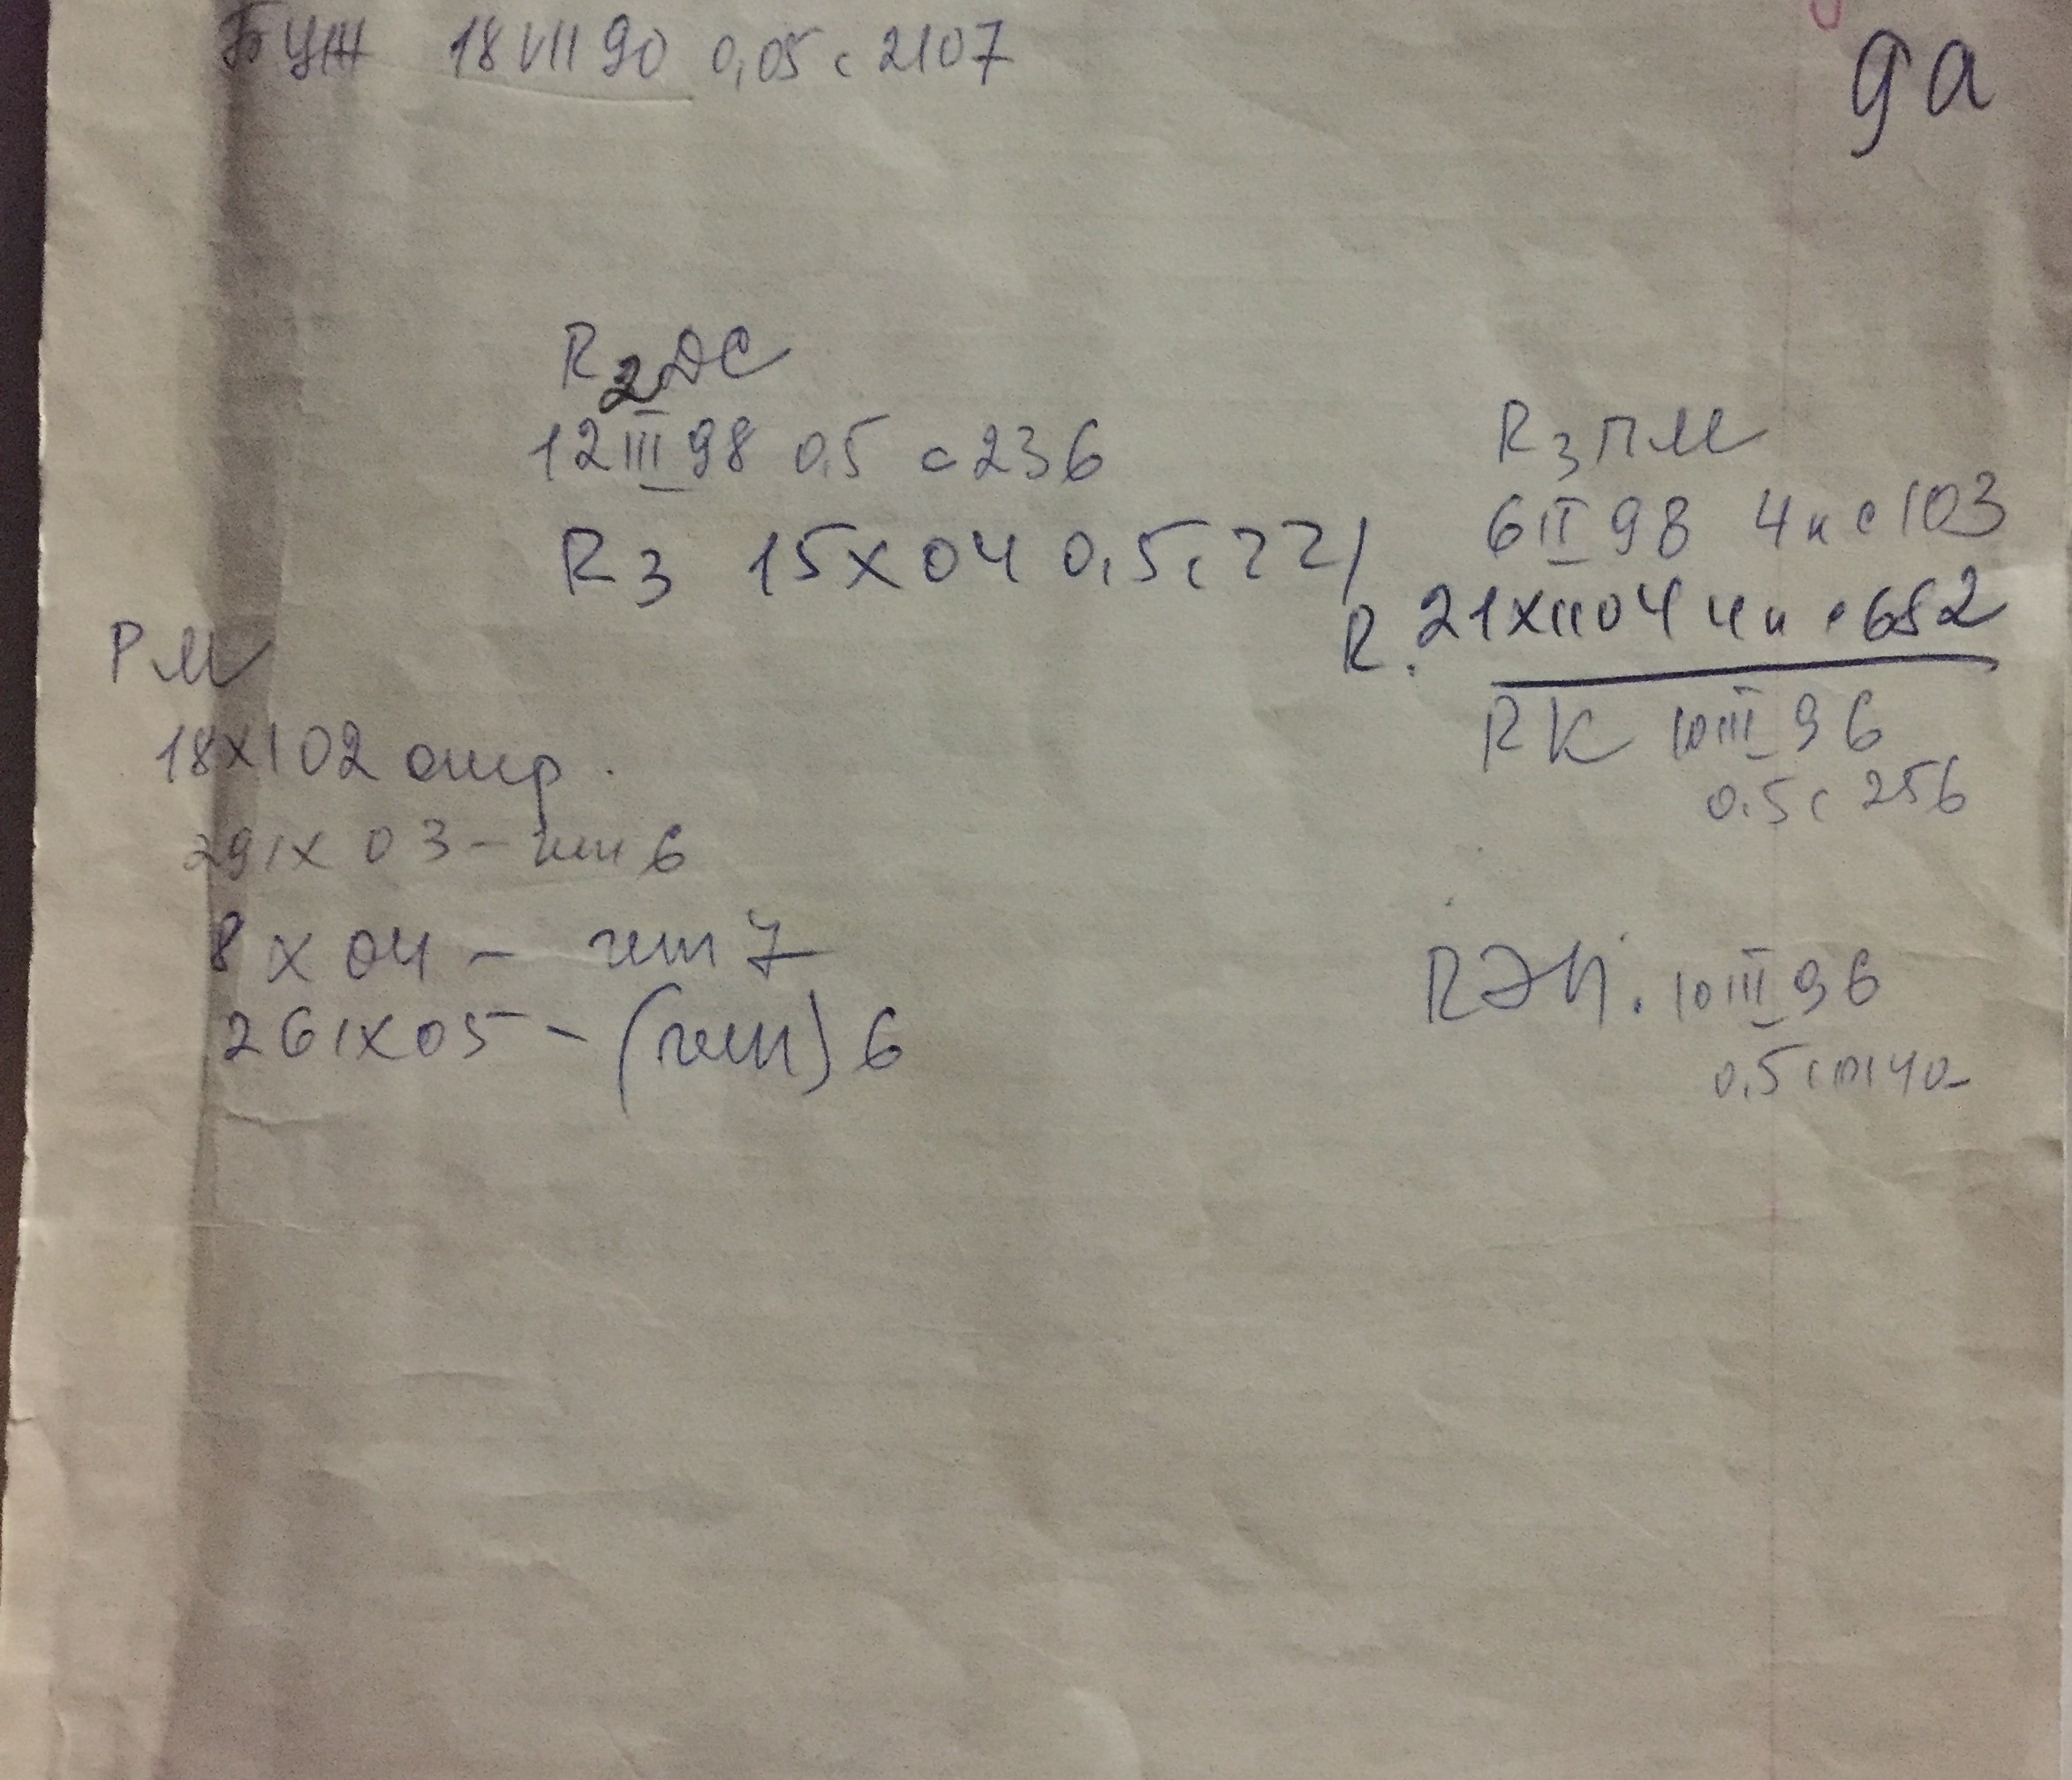 БЦЖ 18 VII 90 0,05 с 2107
да
R2 ДС
12 III 98 0.5 с 236
R3 15 X 04 0,5 с 221
R3 ПМ
6 II 98 4и с 103
R. 21 XII 04 4и с 682
RK 10 III 96
0.5 с 256
РМ
18 XI 02 отр.
29 IX 03 - 6
8 X 04 - гип 7
26 IX 05 - (гип) 6
RЭП. 10 III 96
0.5 с